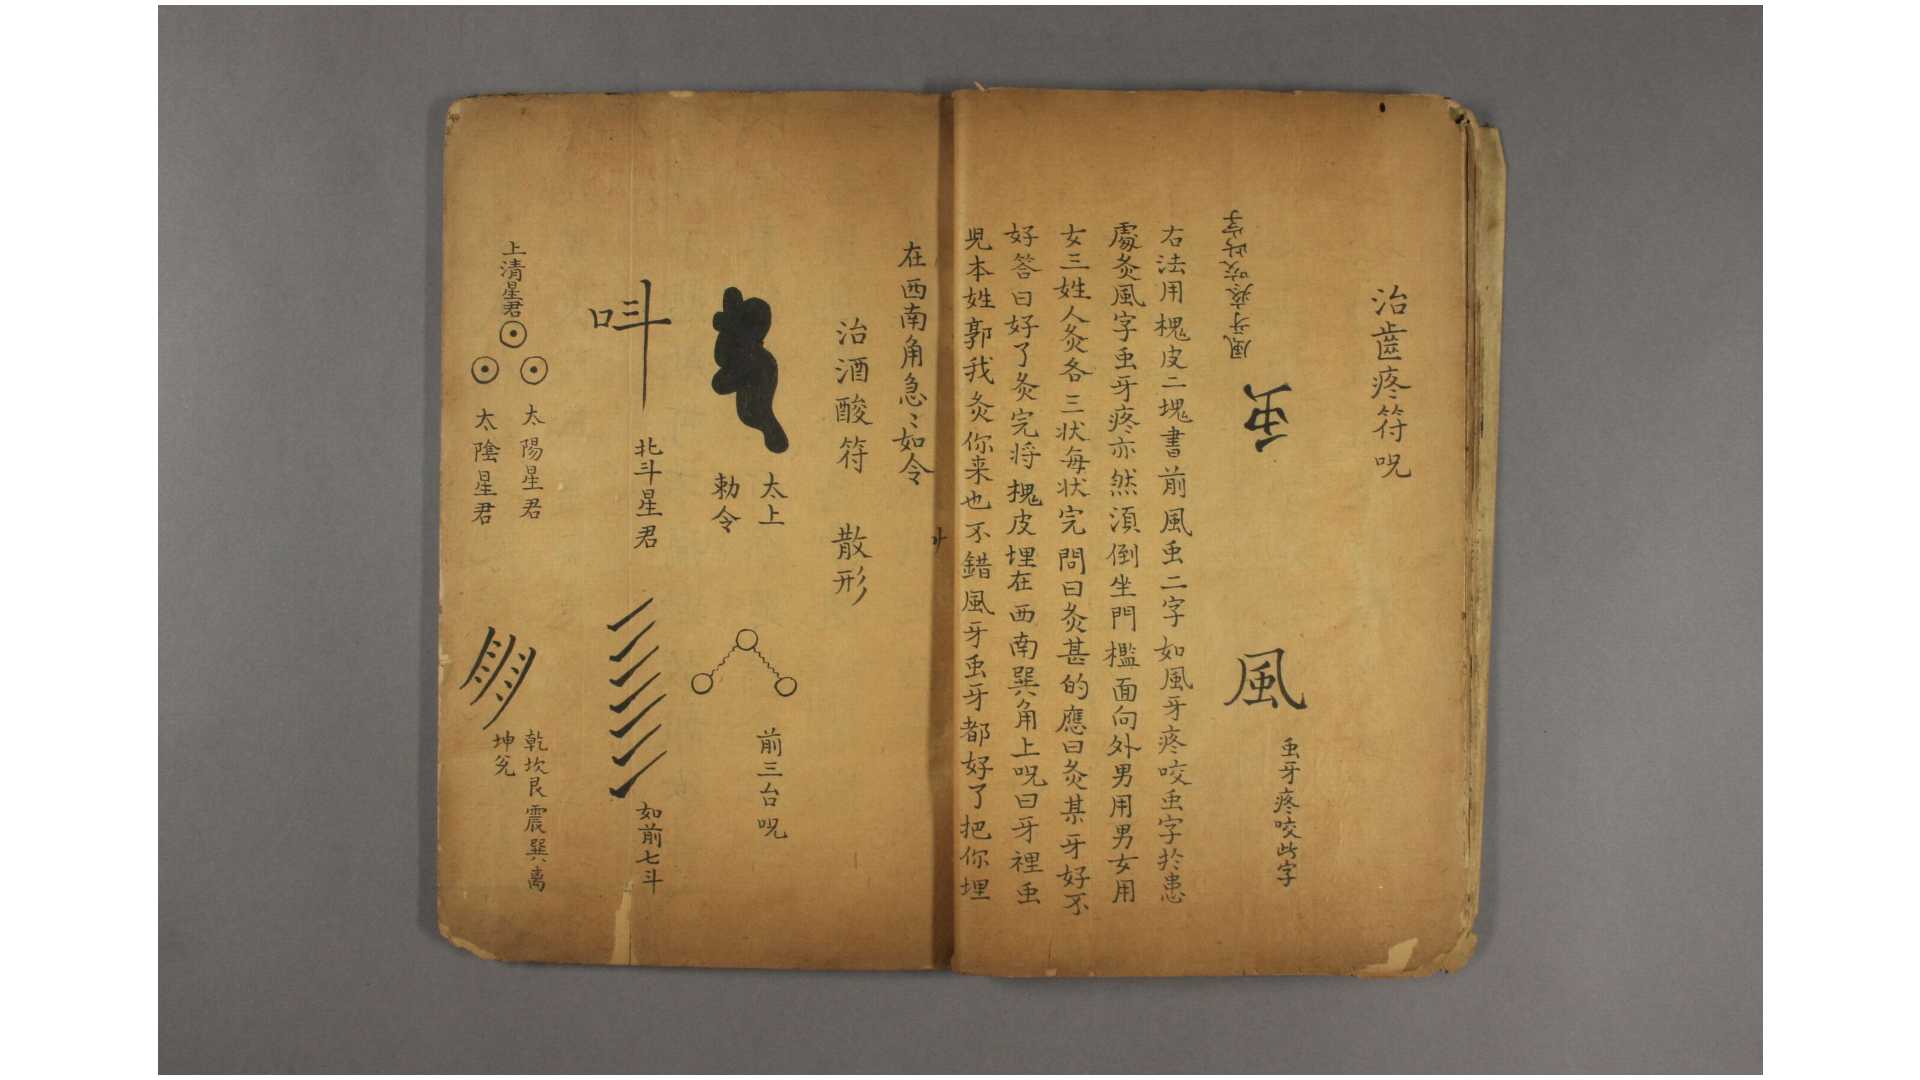 治齒疼符呪
虫牙疼咬此字
風
虫
風牙疼咬此字
右法用槐皮二塊書前風虫二字如風牙疼咬虫字於患
處灸風字虫牙疼亦然須倒坐門檻面向外男用男女用
女三姓人灸各三状每状完問曰灸甚的應曰灸某牙好不
好答曰好了灸完将槐皮埋在西南巽角上呪曰牙裡虫
児本姓郭我灸你来也不錯風牙虫牙都好了把你埋
在西南角急〻如令
治酒酸符 散形
太上
勅令
前三台呪
呌
北斗星君
如前七斗
上清星君
太陽星君
太陰星君
乾坎艮震巽离
坤兊